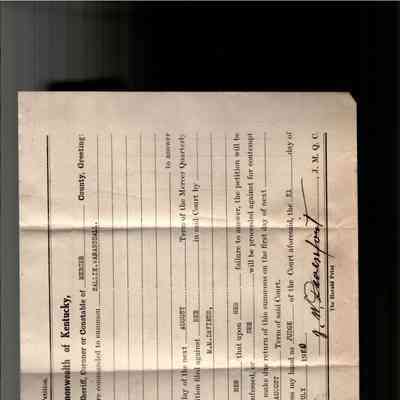 Petition.
monwealth of Kentucky,
Sheriff, Coroner or Constable of MERCER County, Greeting:
re commanded to summon SALLIE.VARANSDALL.
to answer
day of the next AUGUST Term of the Mercer Quarterly
tition filed against HER in said Court by
W.W.DAVIESS,
HER that upon HER failure to answer, the petition will be
nfessed, or SHE will be proceeded against for contempt
make due return of this summons on the first day of next
AUGUST Term of said Court.
ness my hand as JUDGE of the Court aforesaid, the 21 day of
ULY
J. W. Davenport, J. M. Q. C.
The Herald Print